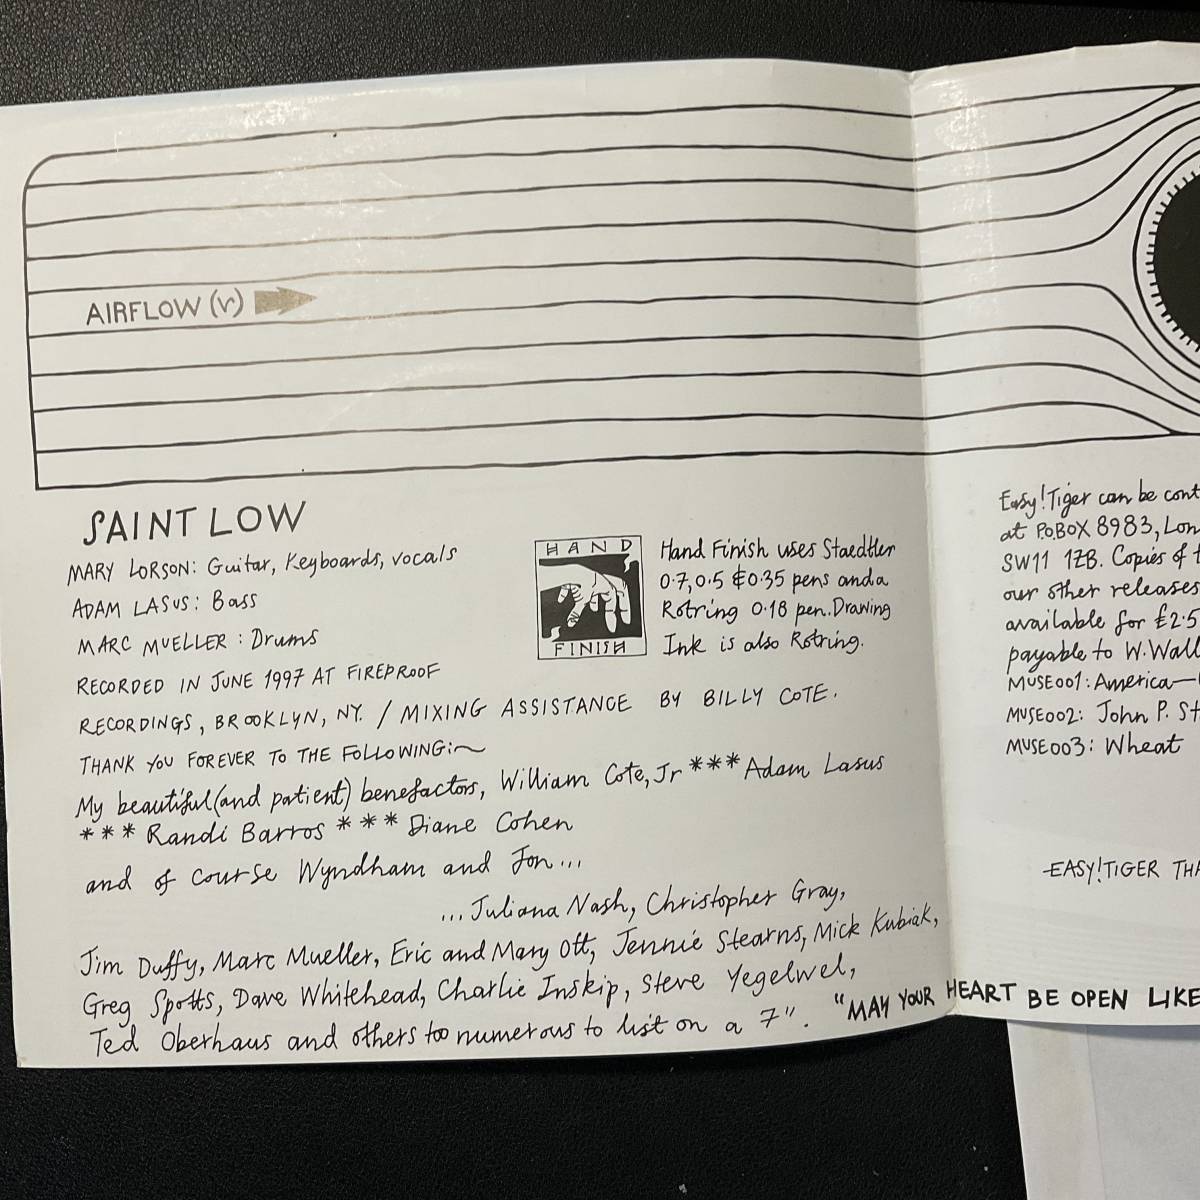 AIRFLOW (v)
SAINT LOW
MARY LORSON: Guitar, Keyboards, vocals
ADAM LASUS: Bass
MARC MUELLER: Drums
RECORDED IN JUNE 1997 AT FIREPROOF
RECORDINGS, BROOKLYN, NY. / MIXING ASSISTANCE BY BILLY COTE.
THANK YOU FOREVER TO THE FOLLOWING:~
My beautiful (and patient) benefactors, William Cote, Jr *** Adam Lasus
*** Randi Barros *** Diane Cohen
and of course Wyndham and Jon...
...Juliana Nash, Christopher Gray,
Jim Duffy, Marc Mueller, Eric and Mary Ott, Jennie Stearns, Mick Kubiak,
Greg Spotts, Dave Whitehead, Charlie Inskip, Steve Yegelwel,
Ted Oberhaus and others too numerous to list on a 7".
HAND
FINISH
Hand Finish uses Staedtler
0.7, 0.5 & 0.35 pens and a
Rotring 0.18 pen. Drawing
Ink is also Rotring.
Easy!Tiger can be cont
at P.O.BOX 8983, Lon
SW11 1ZB. Copies of t
our other releases
available for £2.5
payable to W.Wall
MUSE001: America—
MUSE002: John P. St
MUSE003: Wheat
EASY!TIGER THA
"MAY YOUR HEART BE OPEN LIKE